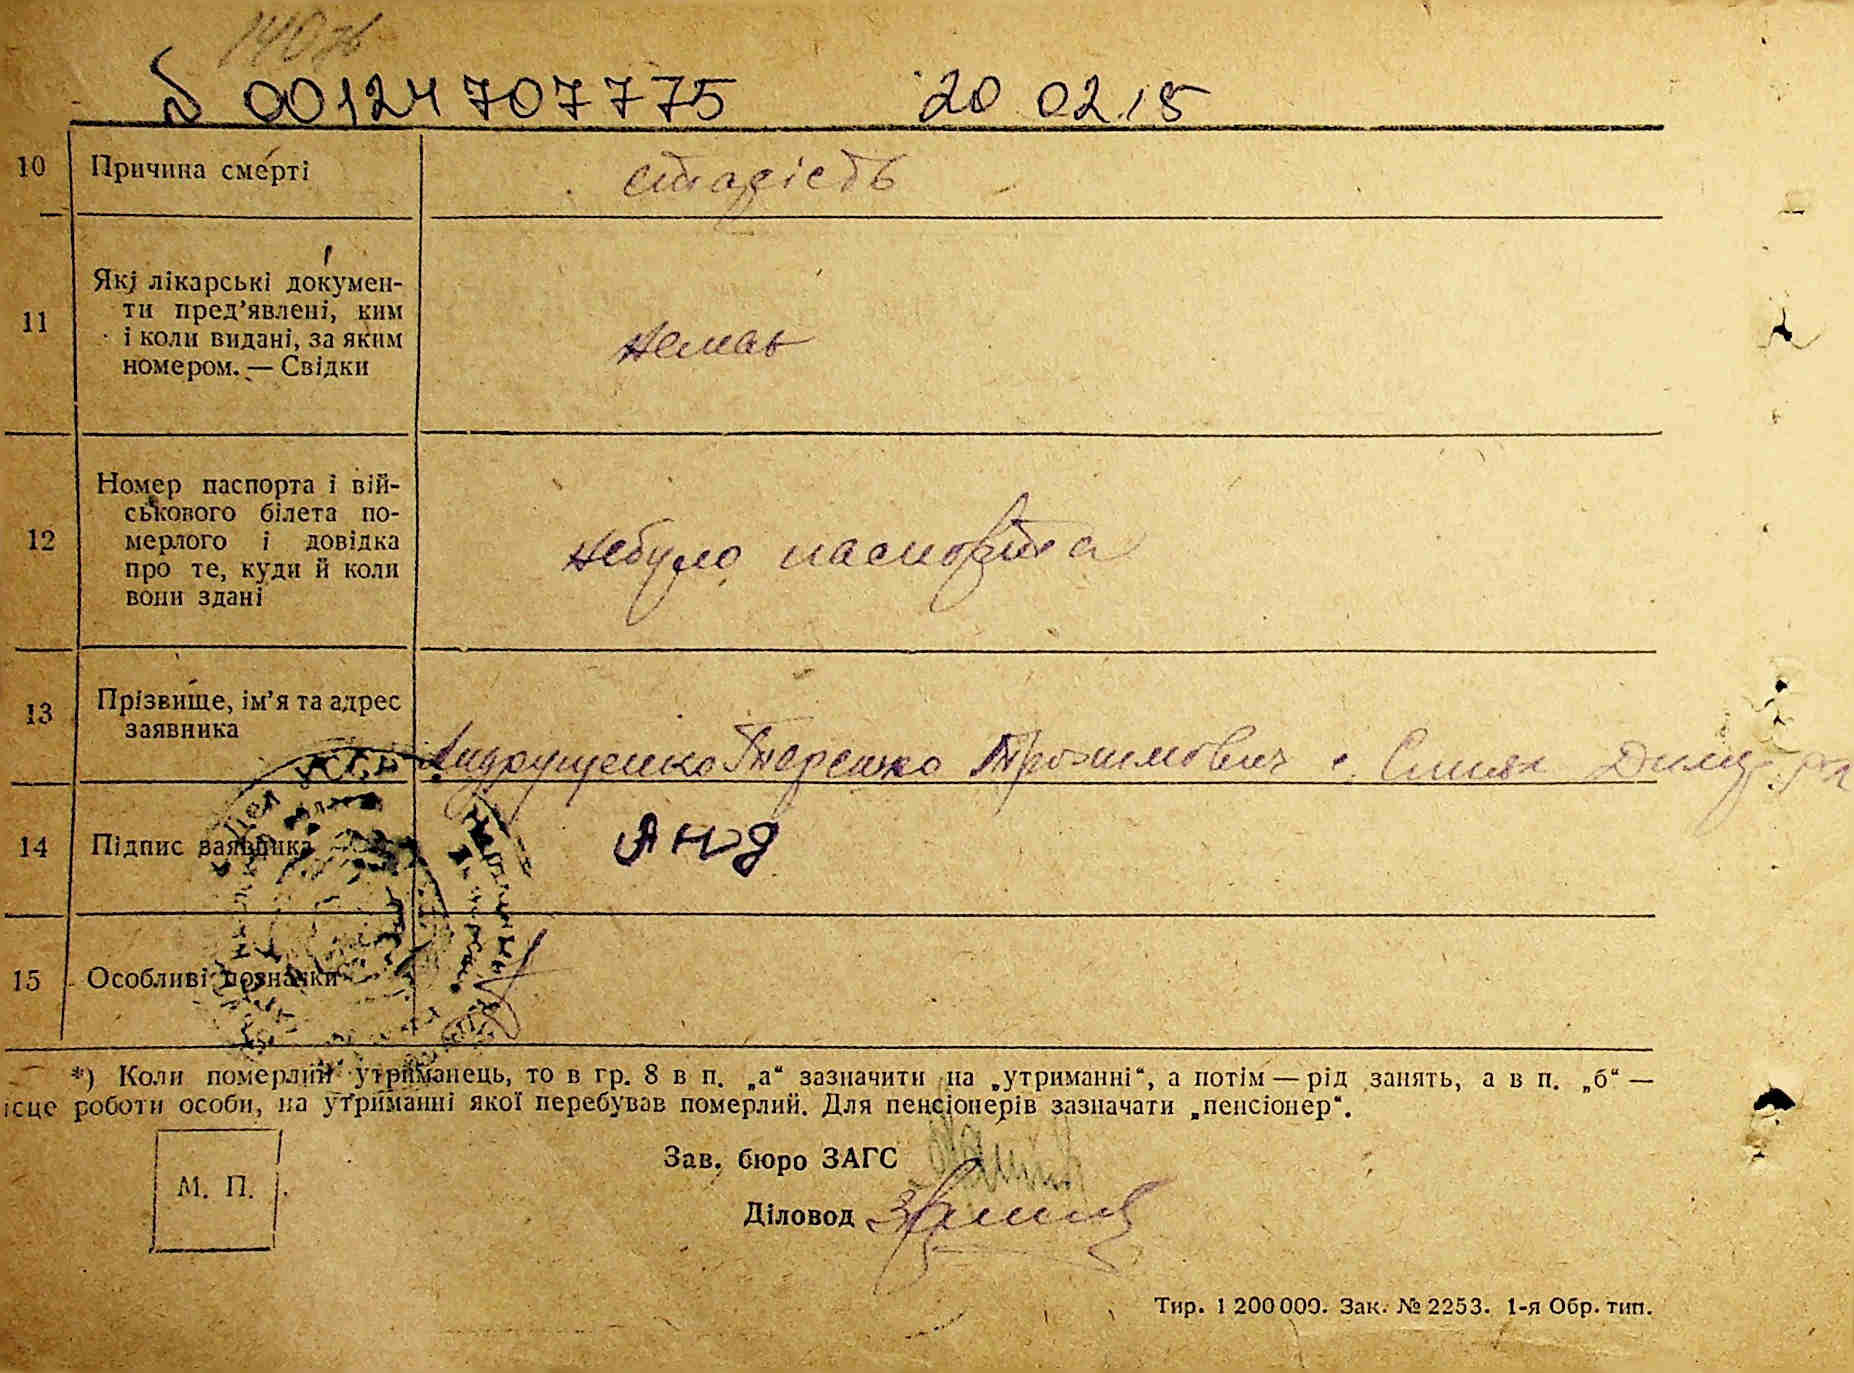 00124707775 20 02.15
10 Причина смерті старість
11 Які лікарські докумен-
ти пред’явлені, ким
і коли видані, за яким
номером. — Свідки
немає
12 Номер паспорта і вій-
ськового білета по-
мерлого і довідка
про те, куди й коли
вони здані
небуло паспорта
13 Прізвище, ім’я та адрес
заявника
Андрущенко Терешко Трохимович с.
14 Підпис заявника Анд
15 Особливі позначки
*) Коли померлий утриманець, то в гр. 8 в п. „а“ зазначити на „утриманні“, а потім — рід занять, а в п. „б“ —
ісце роботи особи, на утриманні якої перебував померлий. Для пенсіонерів зазначати „пенсіонер“.
Зав. бюро ЗАГС
М. П.
Діловод
Тир. 1 200 000. Зак. № 2253. 1-я Обр. тип.